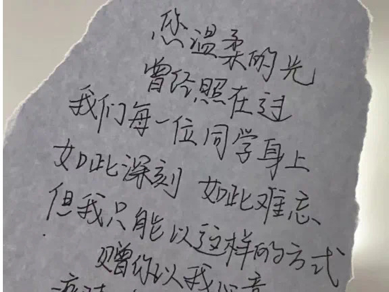 您温柔的光
曾经照在过
我们每一位同学身上
如此深刻 如此难忘
但我只能以这样的方式
赠你以我心意